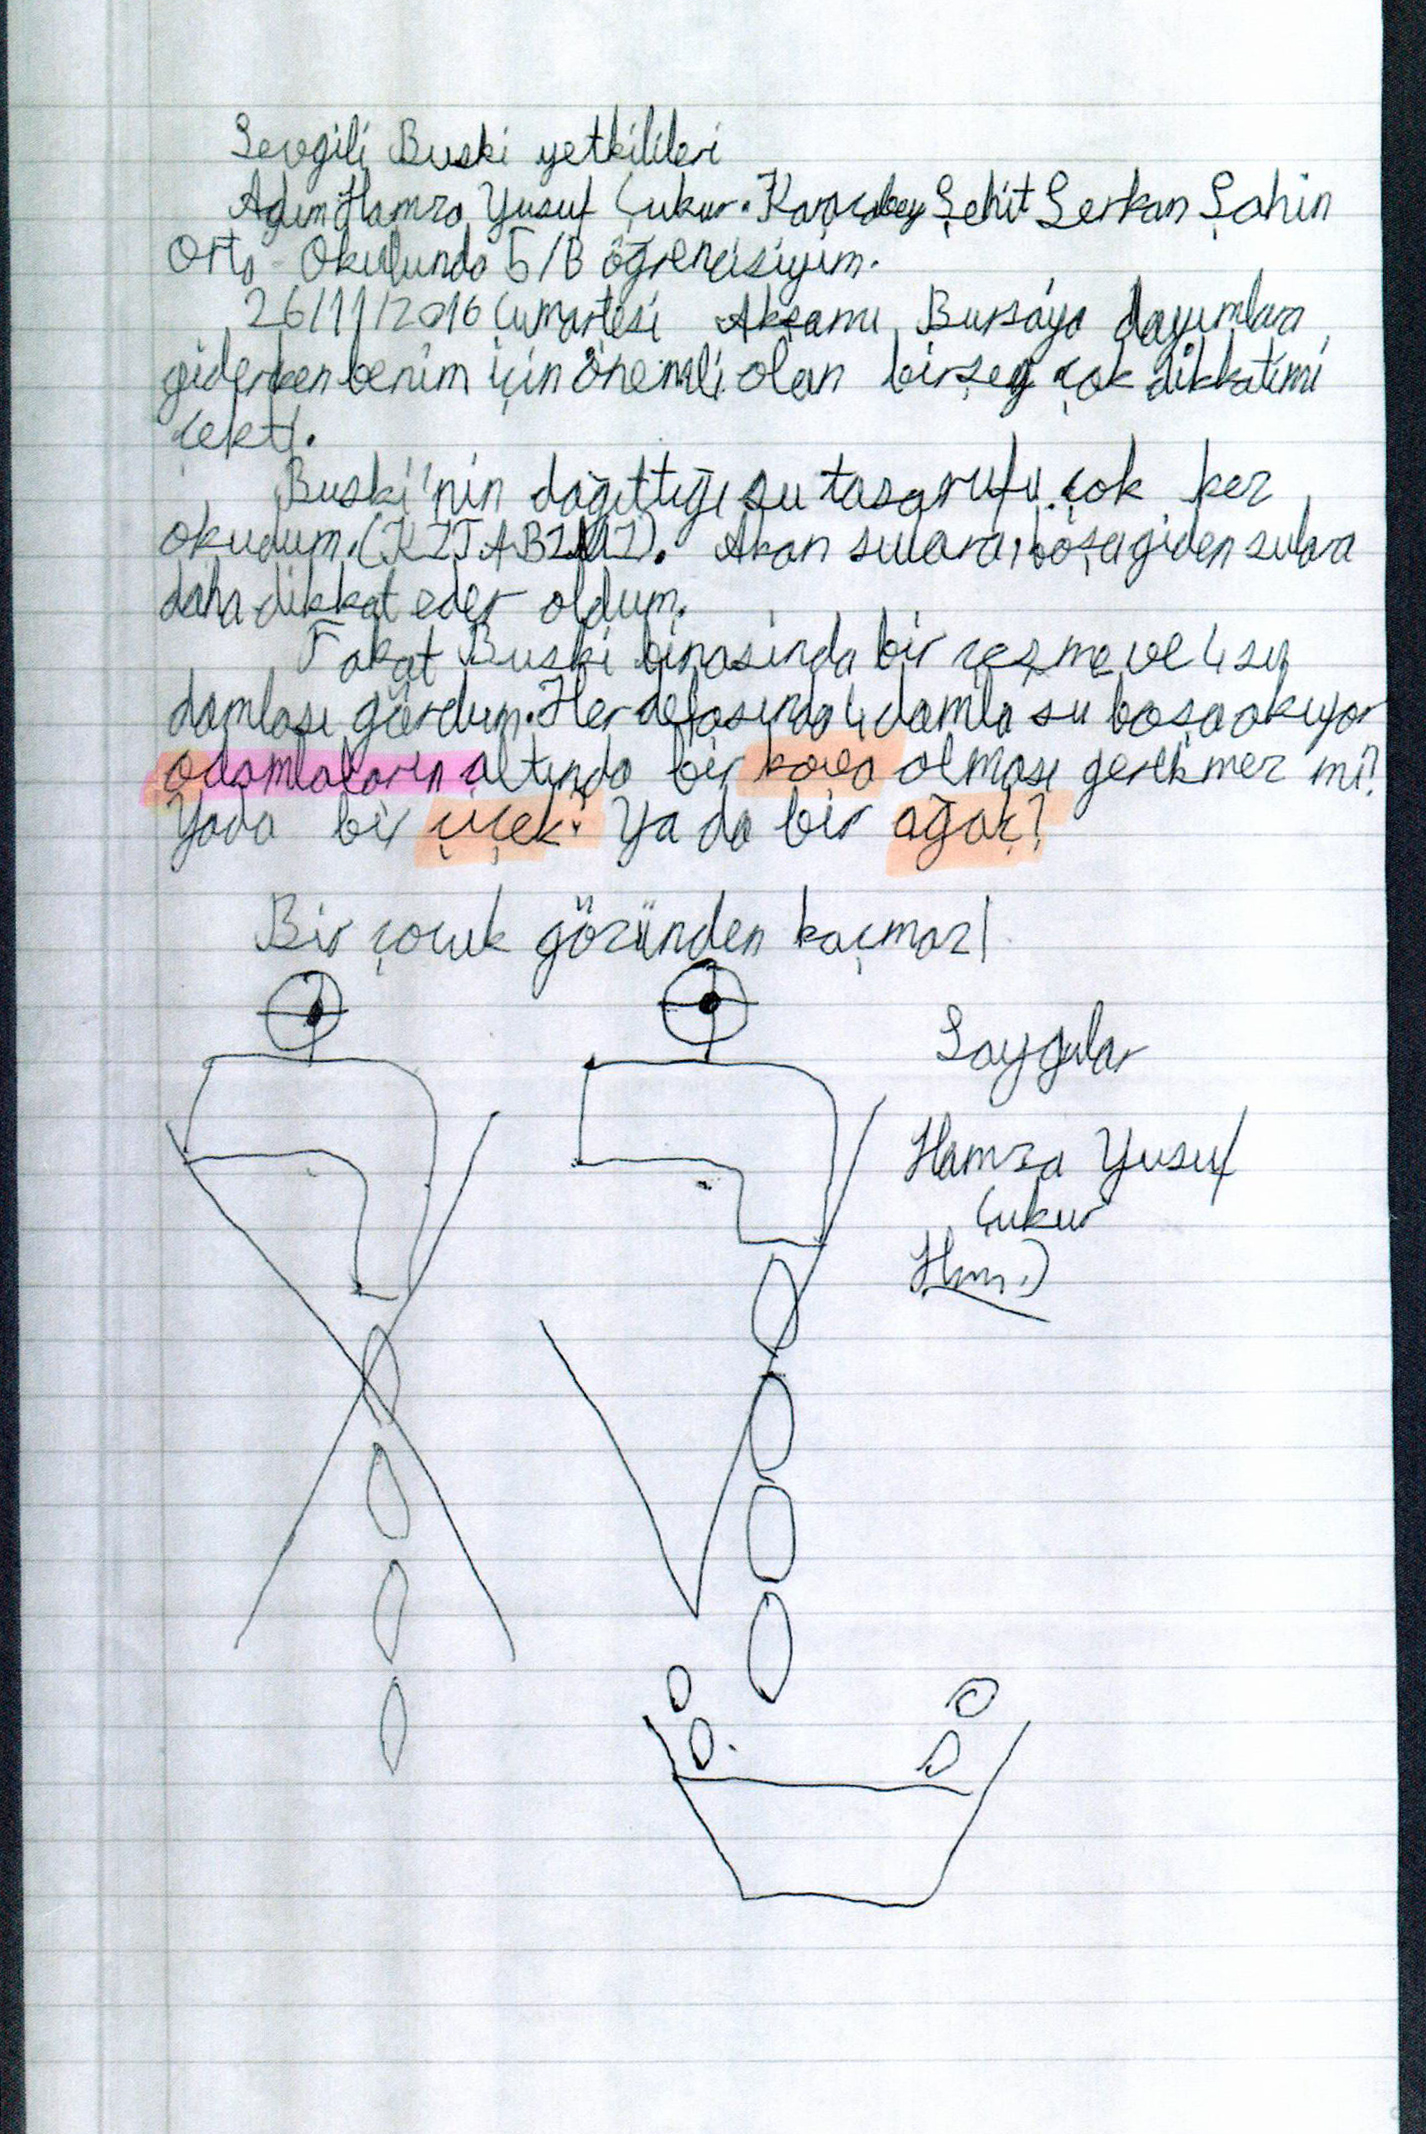 Sevgili Buski yetkilileri
Adım Hamza Yusuf Çukur. Karacabey Şehit Serkan Şahin
Orta Okulunda 5/B öğrencisiyim.
26/11/2016 Cumartesi Akşamı Bursaya dayımlara
giderken benim için önemli olan birşey çok dikkatimi
çekti.
Buski'nin dağıttığı su tasarufu çok kez
okudum.(KİTABINI). Akan sulara, boşa giden sulara
daha dikkat eder oldum.
Fakat Buski binasında bir çeşme ve 4 su
damlası gördum. Her defasında 4 damla su boşa akıyor
odamlaların altında bir kova olması gerekmez mi?
Yada bir çiçek? Ya da bir ağaç?
Bir çocuk gözünden kaçmaz!
Saygılar
Hamza Yusuf
Çukur